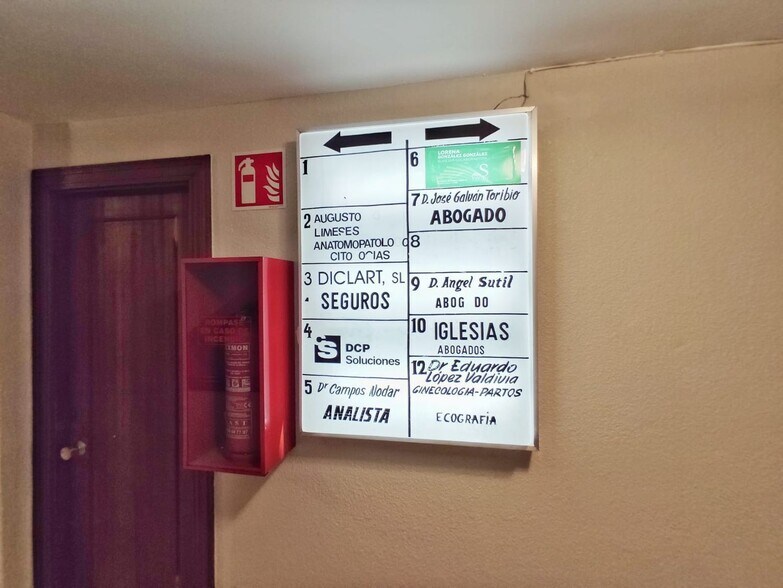 1
2 AUGUSTO
LIMESES
ANATOMOPATOLO O
CITO O IAS
3 DICLART, SL
SEGUROS
4
DCP
Soluciones
5 Dr Campos Nodar
ANALISTA
6
LORENA
GONZÁLEZ GONZÁLEZ
7 D. José Galván Toribio
ABOGADO
8
9 D. Angel Sutil
ABOG DO
10 IGLESIAS
ABOGADOS
12 Dr Eduardo
López Valdivia
GINECOLOGIA-PARTOS
ECOGRAFIA
ROMPASE
EN CASO DE
INCENDIO